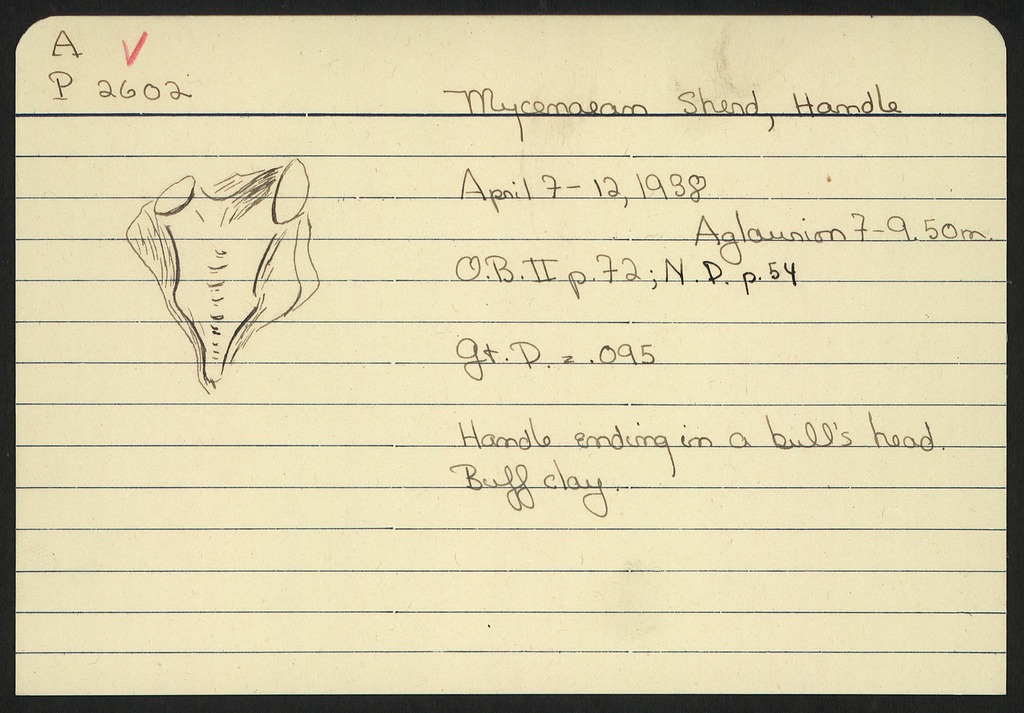 A
P 2602
Mycenaean Sherd, Handle
April 7-12, 1938
Aglaurion 7-9.50m.
O.B. II p. 72; N.D. p. 54
Gt. D. = .095
Handle ending in a bull's head.
Buff clay.